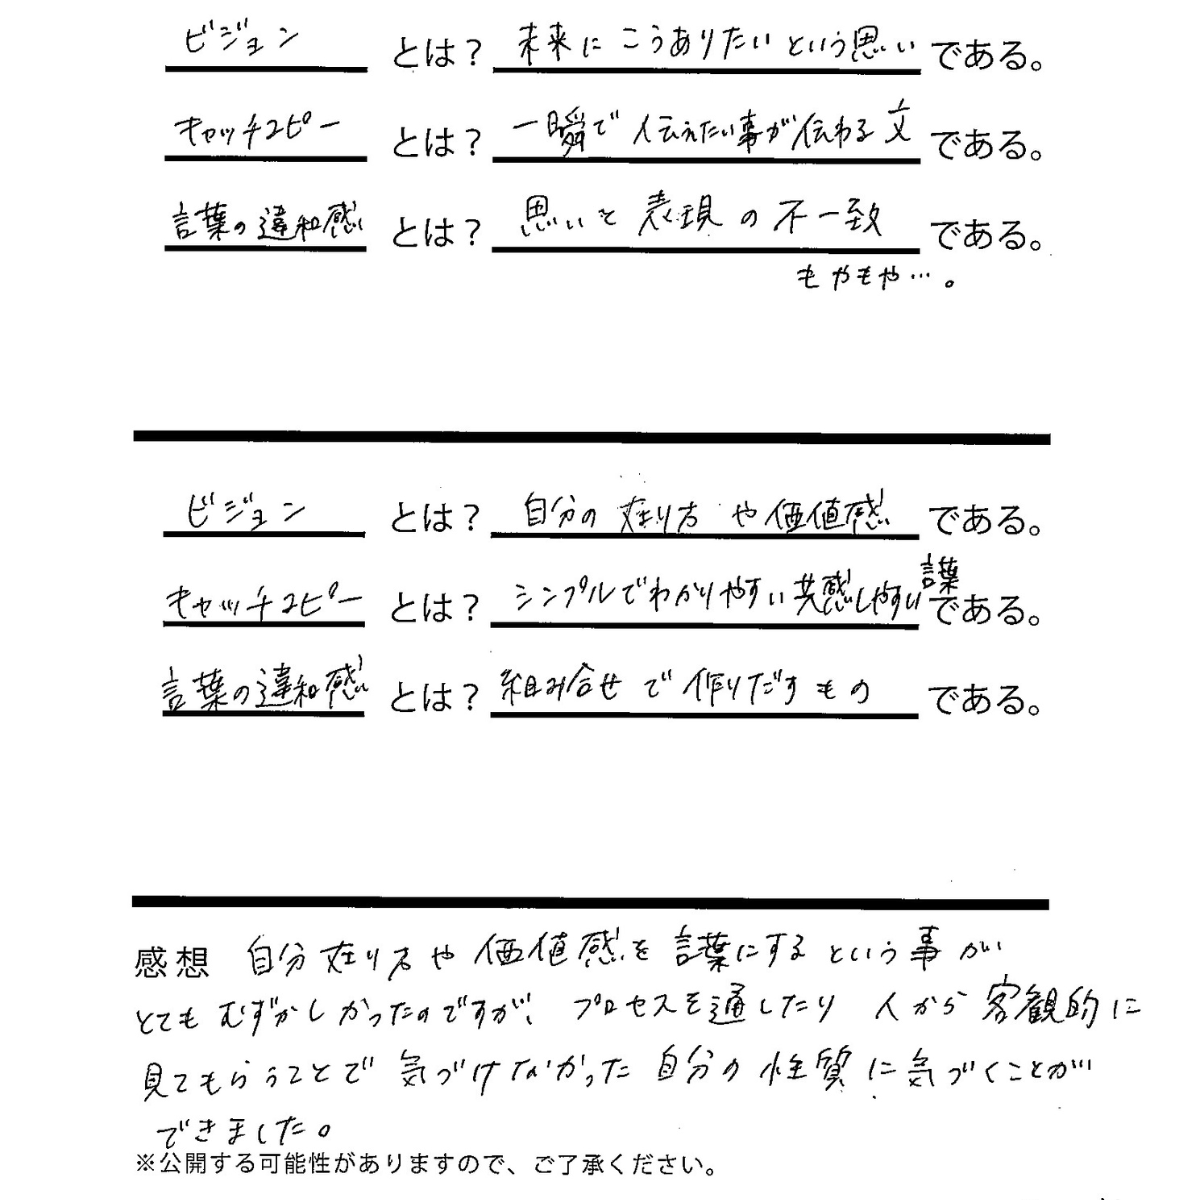 ビジョン とは？ 未来にこうありたいという思い である。
キャッチコピー とは？ 一瞬で伝えたい事が伝わる文 である。
言葉の違和感 とは？ 思いと表現の不一致 である。
もやもや…。
ビジョン とは？ 自分の在り方や価値感 である。
キャッチコピー とは？ シンプルでわかりやすい共感しやすい言葉 である。
言葉の違和感 とは？ 組み合せで作りだすもの である。
感想 自分在り方や価値感を言葉にするという事が
とてもむずかしかったのですが、プロセスを通したり 人から客観的に
見てもらうことで気づけなかった自分の性質に気づくことが
できました。
※公開する可能性がありますので、ご了承ください。